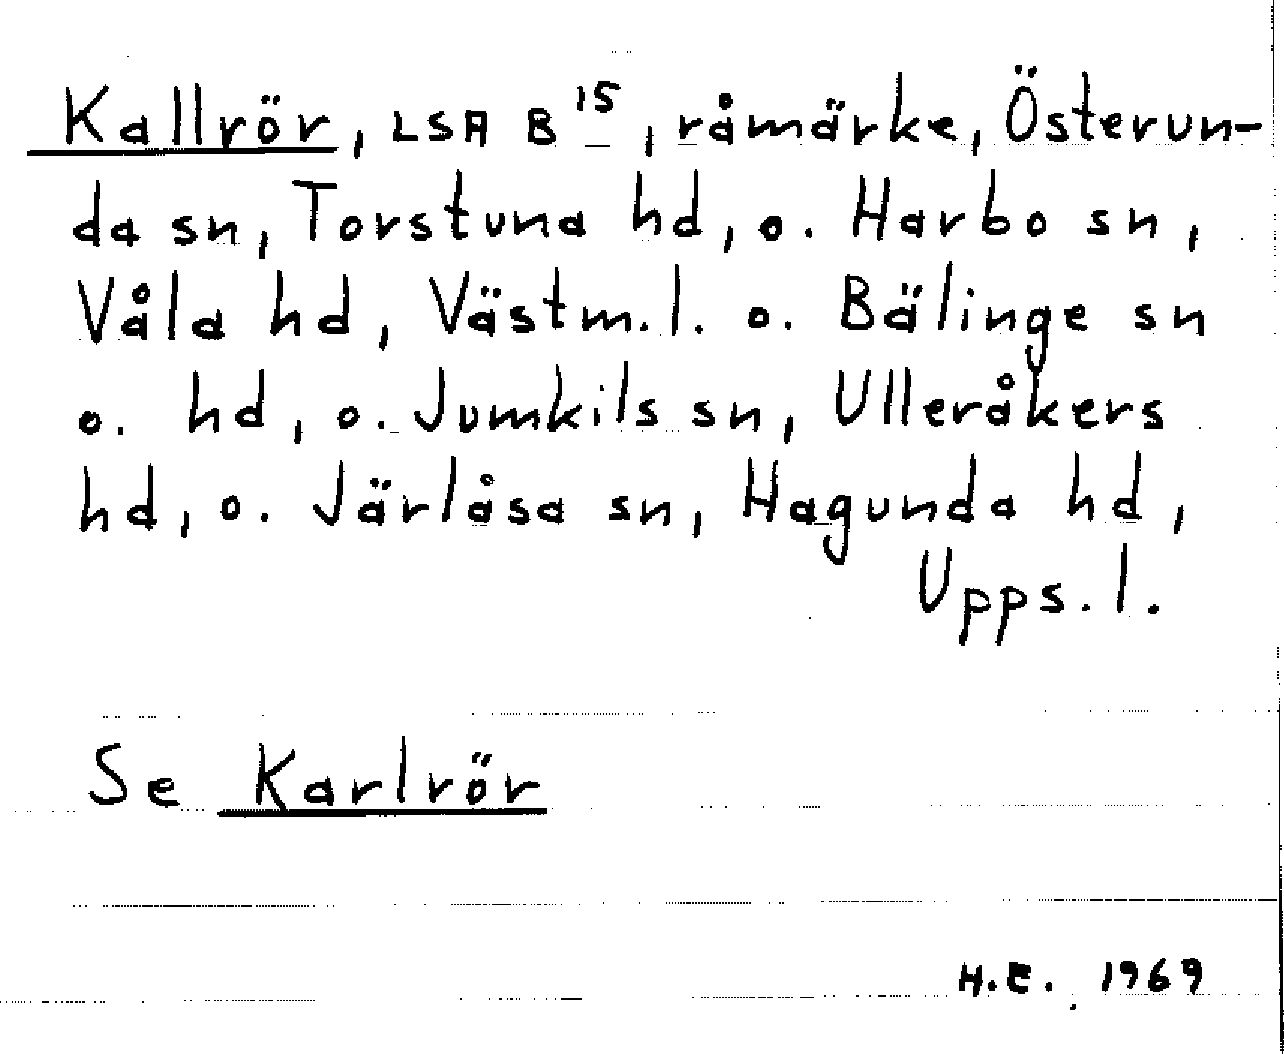 Kallrör, LSA B 15, råmärke, Österun-
da sn, Torstuna hd, o. Harbo sn,
Våla hd, Västm. l. o. Bälinge sn
o. hd, o. Jumkils sn, Ulleråkers
hd, o. Järlåsa sn, Hagunda hd,
Upps. l.
Se Karlrör
H.E. 1969